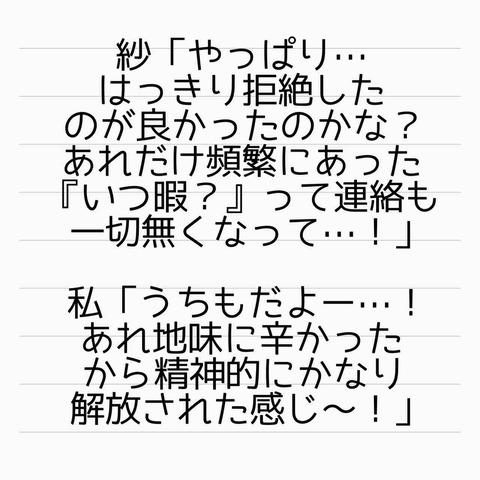 紗「やっぱり…
はっきり拒絶した
のが良かったのかな？
あれだけ頻繁にあった
『いつ暇？』って連絡も
一切無くなって…！」
私「うちもだよー…！
あれ地味に辛かった
から精神的にかなり
解放された感じ〜！」